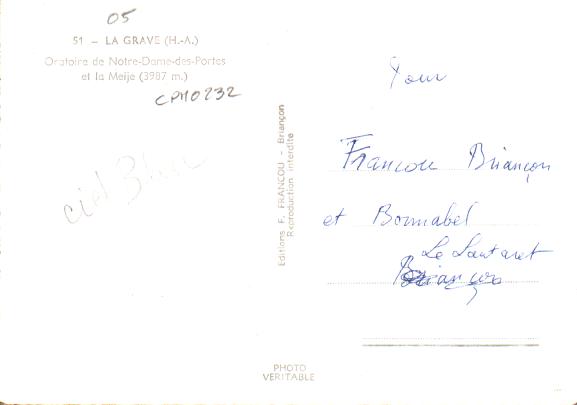 05
51 — LA GRAVE (H.-A.)
Oratoire de Notre-Dame-des-Portes
et la Meije (3987 m.)
CPM0232
ciel Bleu
Editions F. FRANCOU - Briançon
Reproduction interdite
Pour
Francou Briançon
et Bonnabel
Le Lautaret
Briançon
PHOTO
VERITABLE